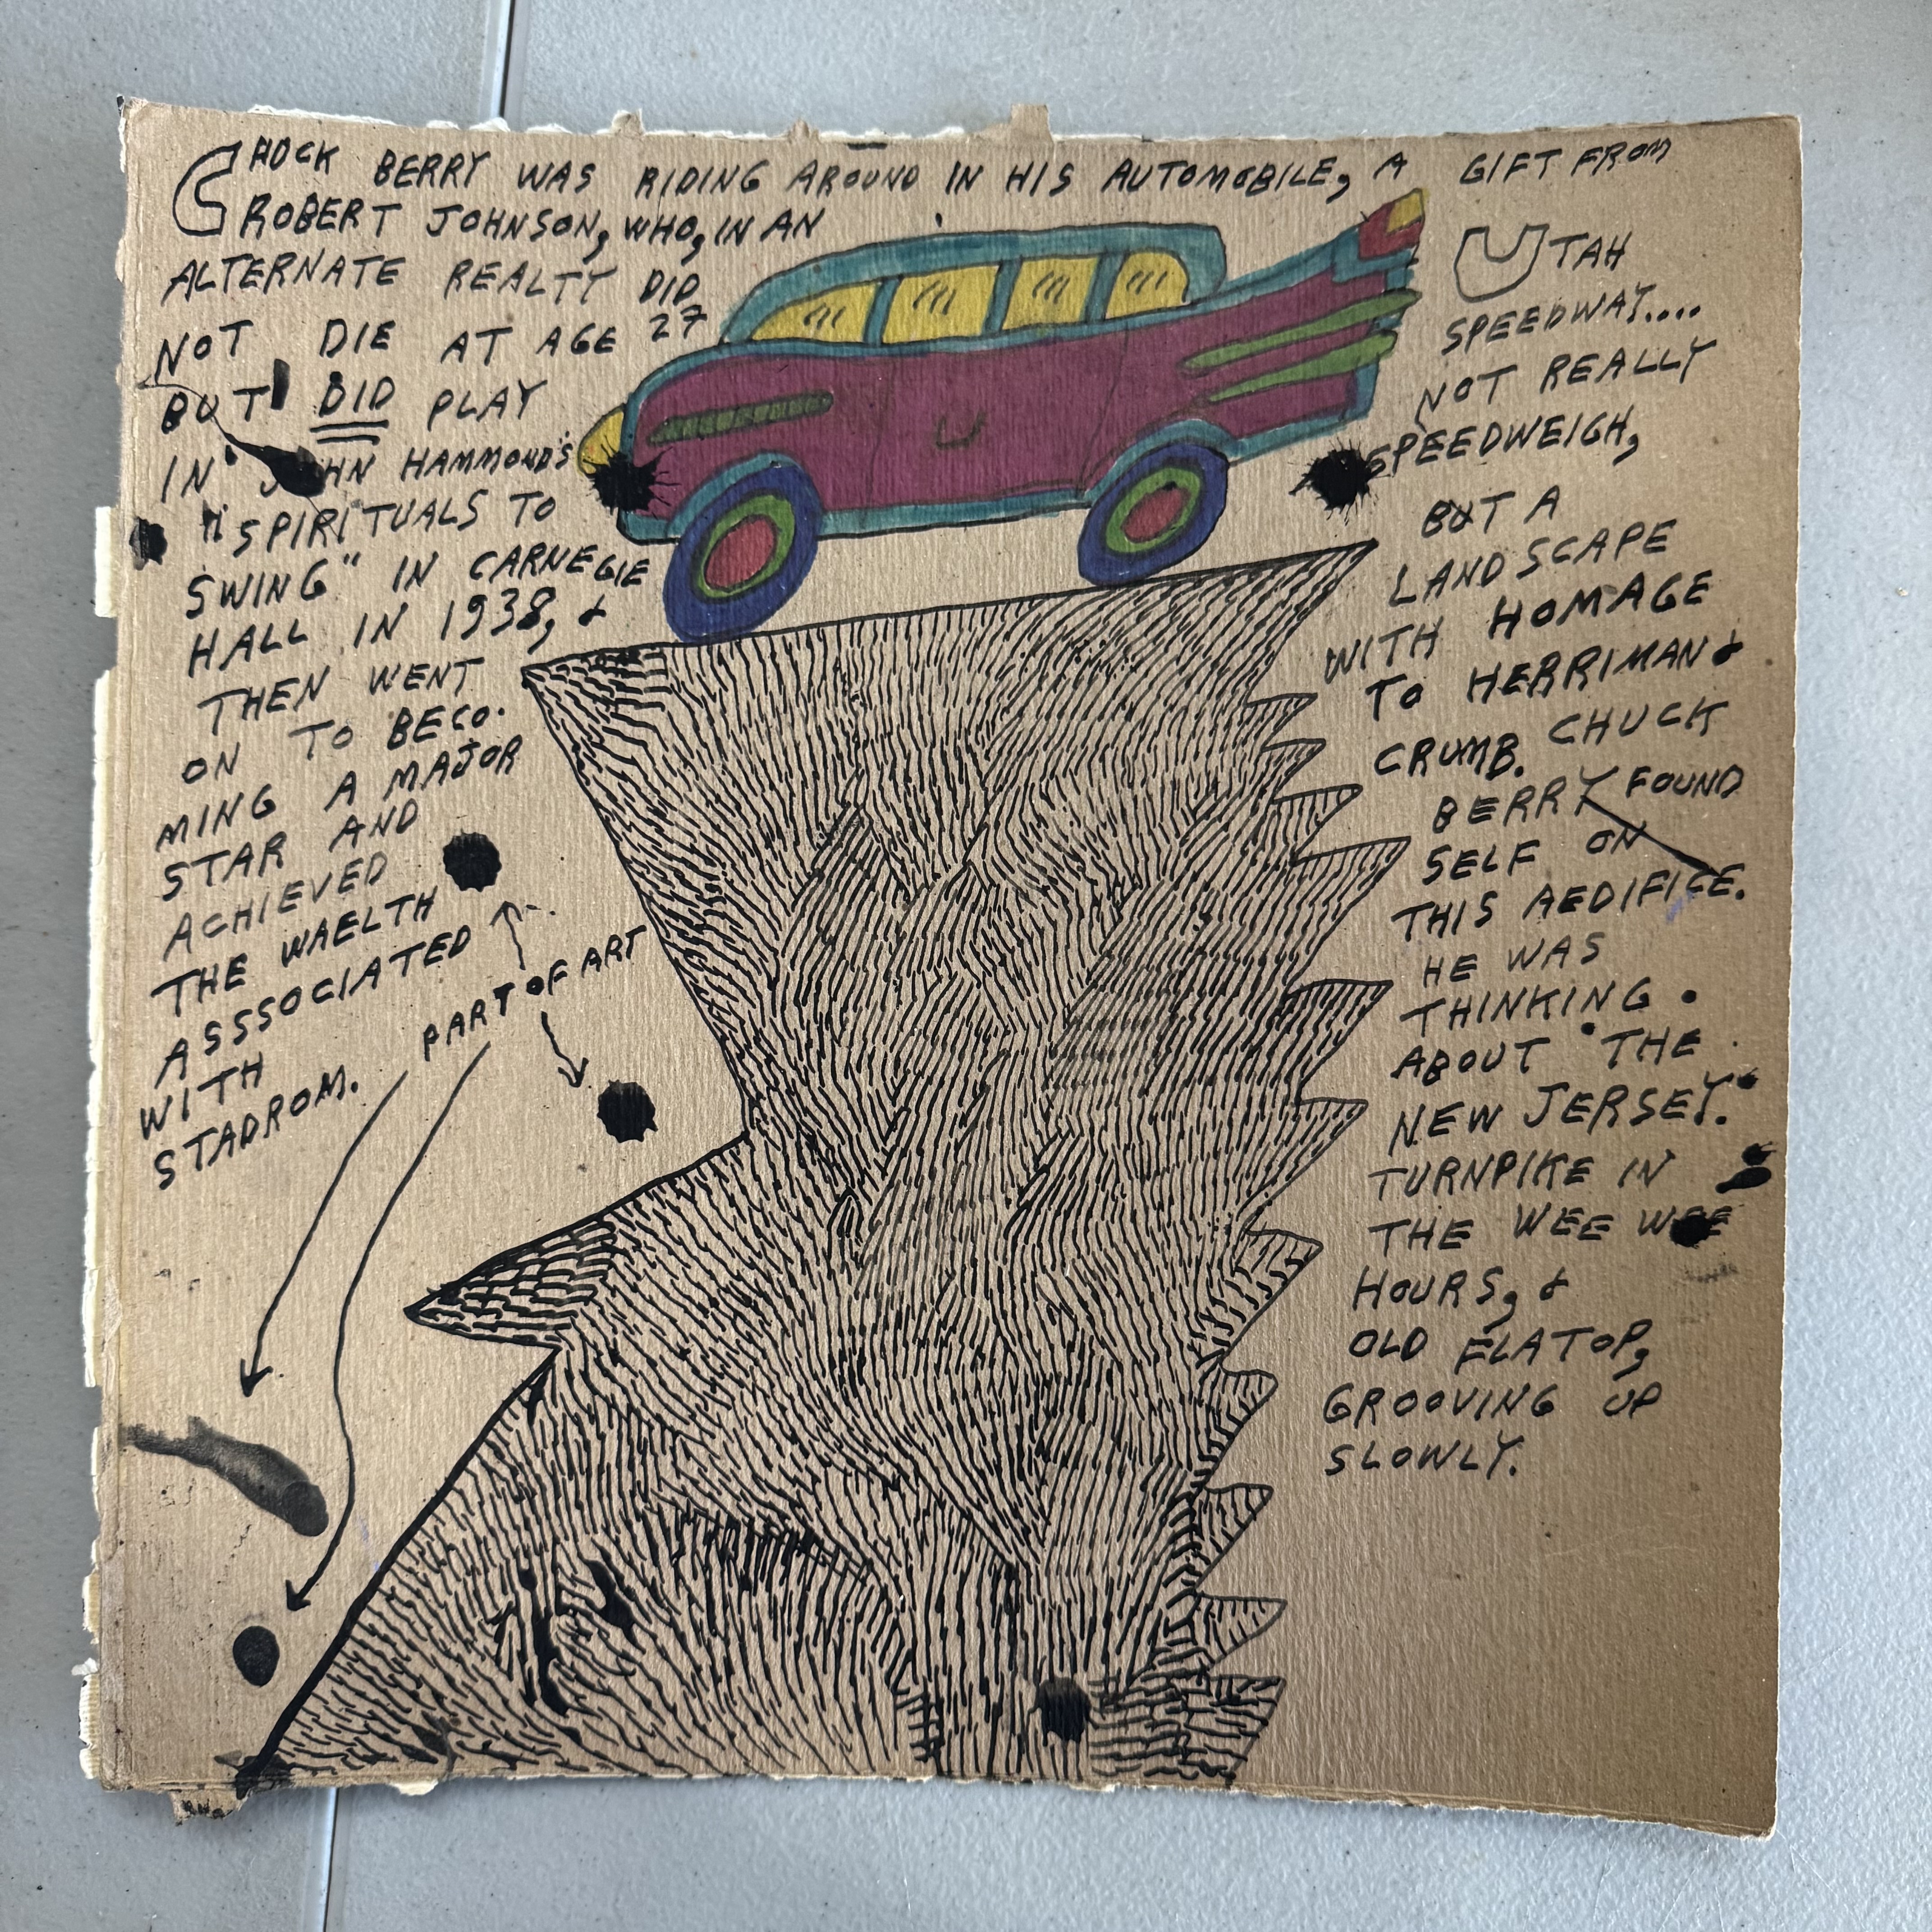 CHUCK BERRY WAS RIDING AROUND IN HIS AUTOMOBILE, A GIFT FROM
ROBERT JOHNSON, WHO, IN AN
ALTERNATE REALTY DID
NOT DIE AT AGE 27
BUT DID PLAY
IN JOHN HAMMOND'S
"SPIRITUALS TO
SWING" IN CARNEGIE
HALL IN 1938, &
THEN WENT
ON TO BECO-
MING A MAJOR
STAR AND
ACHIEVED
THE WAELTH
ASSSOCIATED
WITH
STADROM.
PART OF ART
UTAH
SPEEDWAY....
NOT REALLY
SPEEDWEIGH,
BUT A
LANDSCAPE
WITH HOMAGE
TO HERRIMAN &
CRUMB. CHUCK
BERRY FOUND
SELF ON
THIS AEDIFICE.
HE WAS
THINKING
ABOUT "THE
NEW JERSEY"
TURNPIKE IN
THE WEE WEE
HOURS, &
OLD FLATOP,
GROOVING UP
SLOWLY.